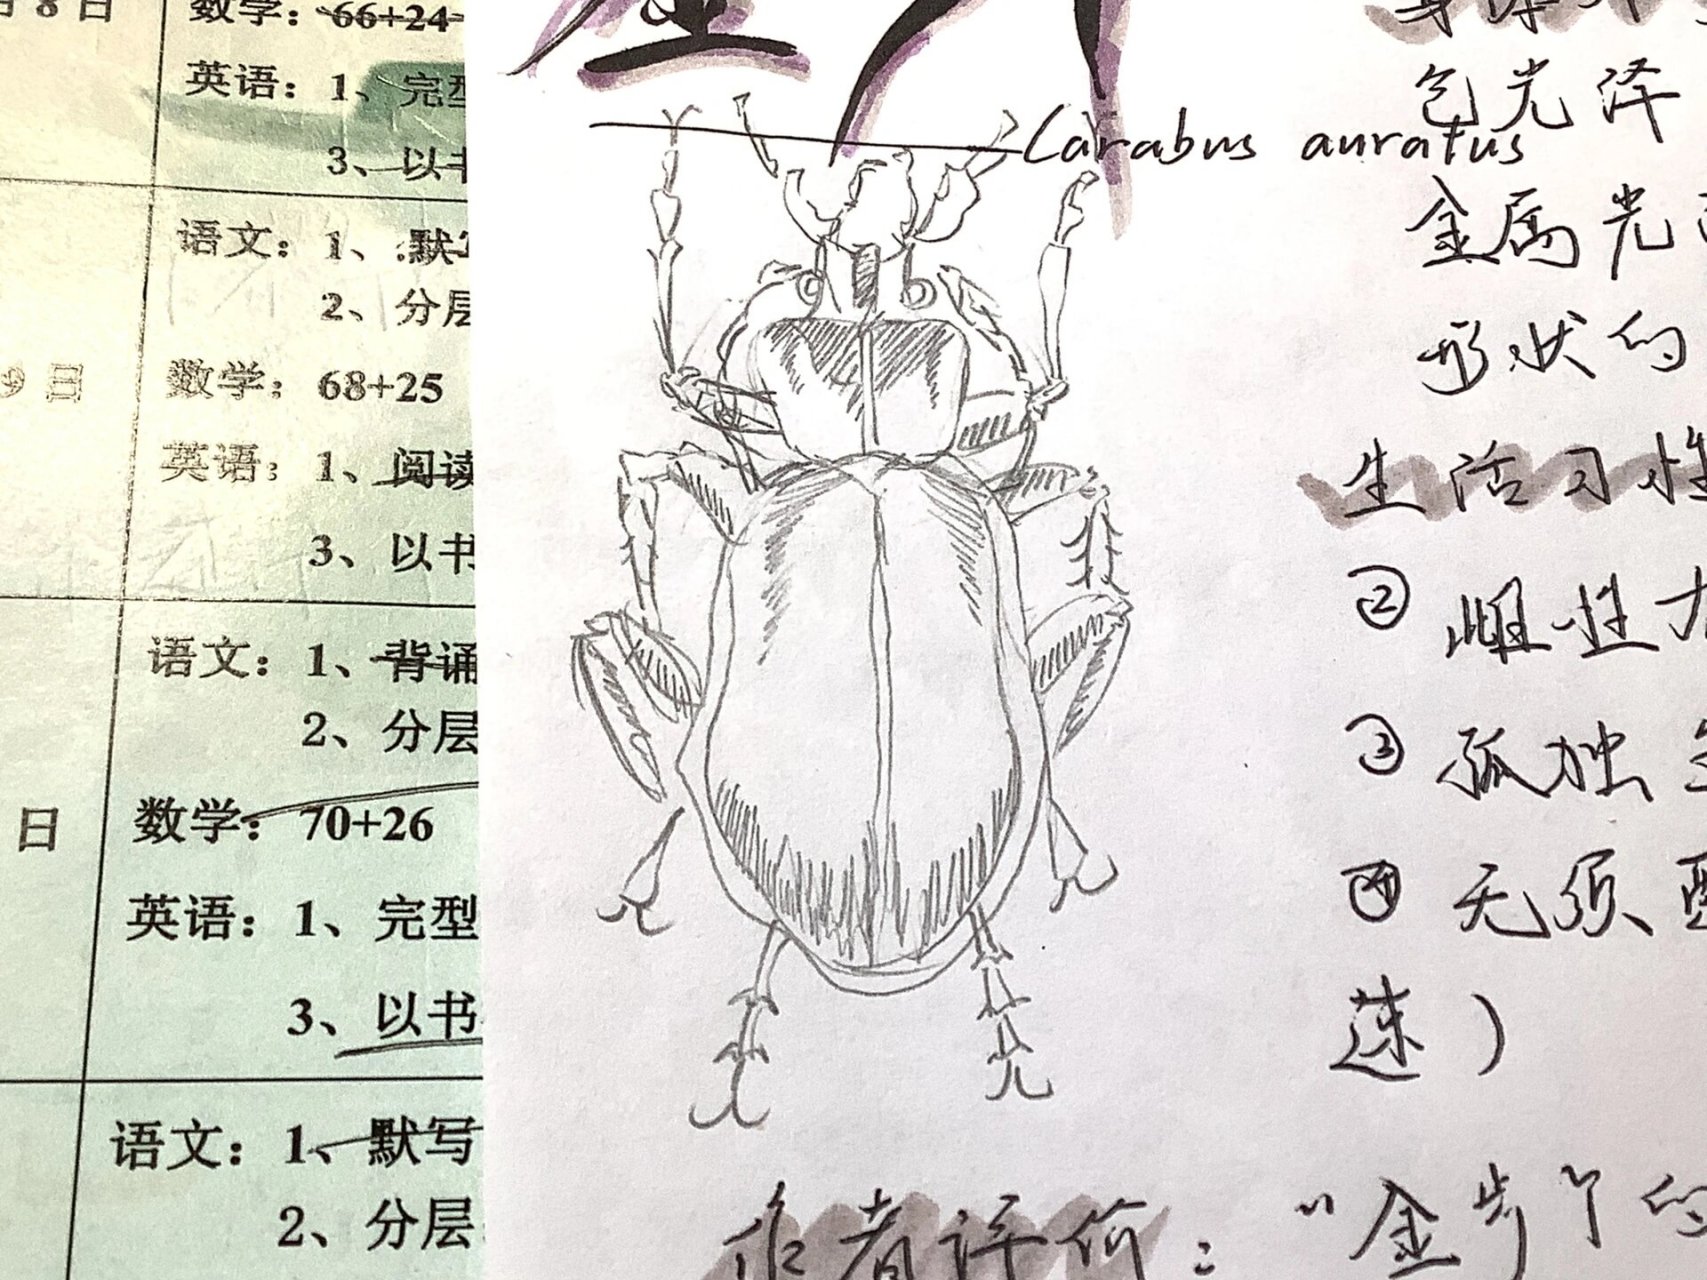 月8日
数学：66+24
英语：1、完型
3、以书
语文：1、默写
2、分层
9日
数学：68+25
英语：1、阅读
3、以书
语文：1、背诵
2、分层
日
数学：70+26
英语：1、完型
3、以书
语文：1、默写
2、分层
金
Carabus auratus
身体
色光泽
金属光
形状的
生活习性
② 雌性
③ 孤独
④ 无须
速）
作者评价：“金步个的